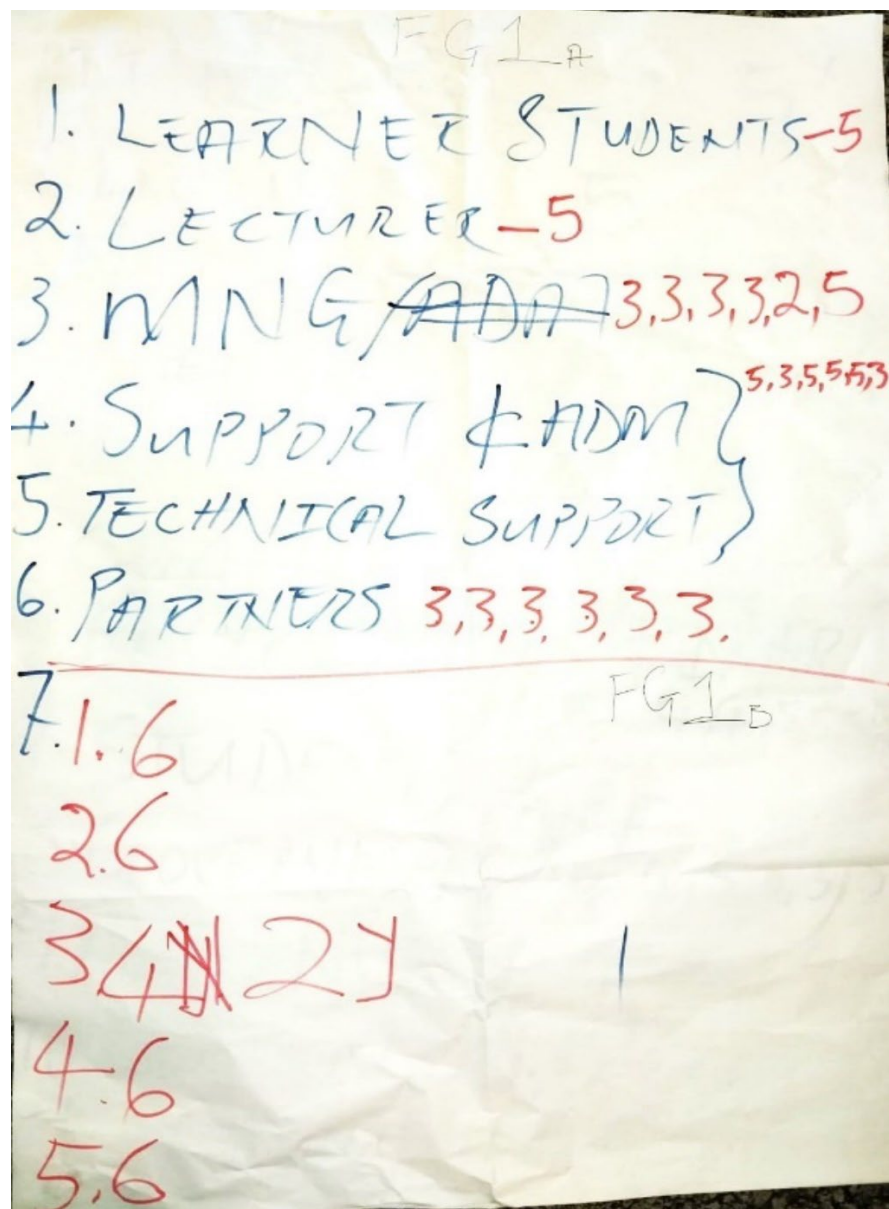 FG1A
1. LEARNER STUDENTS-5
2. LECTURER-5
3. MNG 3,3,3,3,2,5
4. SUPPORT & ADM 5,3,5,5,5,3
5. TECHNICAL SUPPORT
6. PARTNERS 3,3,3,3,3,3.
FG1B
7.1.6
2.6
3 4N 2Y
4.6
5.6